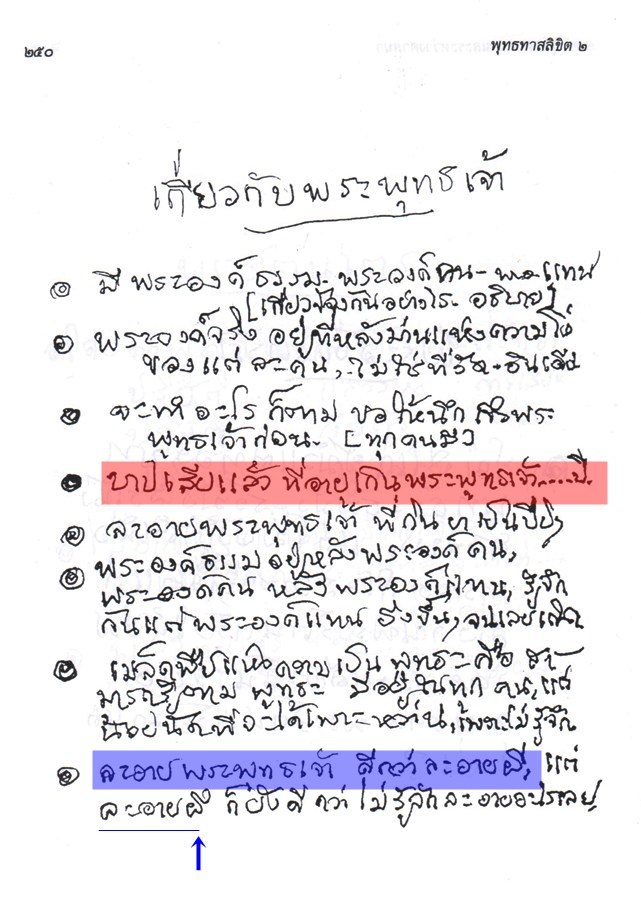 ๒๕๐
พุทธทาสลิขิต ๒
เกี่ยวกับพระพุทธเจ้า
มี พระองค์ ธรรม - พระองค์ คน - พระองค์ แทน
[เกี่ยวข้องกันอย่างไร อธิบาย]
พระองค์จริง อยู่ที่หลังม่านแห่งความโง่
ของแต่ละคน, ไม่ใช่ที่วัด - อินเดีย
จะทำอะไร ก็ตาม ขอให้นึก ถึงพระ
พุทธเจ้าก่อน [ทุกคนสิ]
บาปเสียแล้ว ที่อายุเกินพระพุทธเจ้า.....ปี
ละอายพระพุทธเจ้า ที่กิน
พระองค์ธรรม อยู่หลังพระองค์ คน,
พระองค์คน หลัง พระองค์แทน, รู้จัก
กันแต่ พระองค์แทน ยิ่งขึ้น, จนเลยเถิด
เมล็ดพืชแห่งความเป็น พุทธะ คือ
พุทธะ มีอยู่ในทุก คน, แต่
น้อยนักที่จะได้เพาะหว่าน, เพราะไม่รู้จัก
ละอายพระพุทธเจ้า ดีกว่า ละอายผี, แต่
ละอายผี ก็ยังดี กว่า ไม่รู้จัก ละอายอะไรเลย,